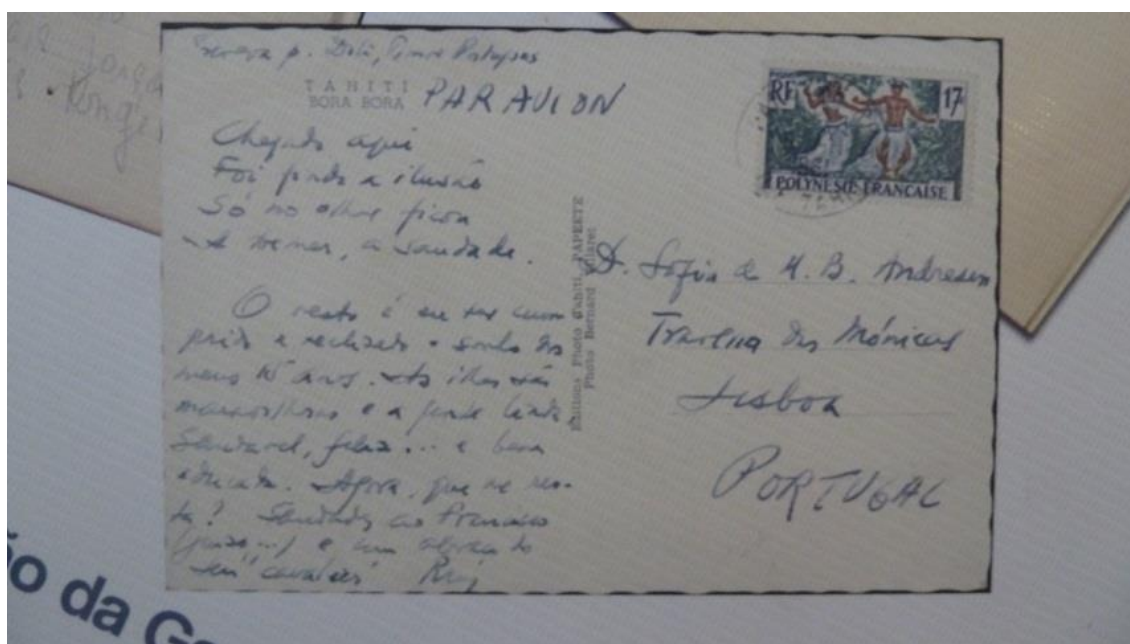 Escreva p. Dili, Timor Português
TAHITI
BORA BORA
PAR AVION
Chegado aqui
Foi perda a ilusão
Só no olhar ficou
A tremer, a saudade.
O resto é eu ter cum
prido e realizado o sonho dos
meus 15 anos. As ilhas são
maravilhosas e a gente linda
Saudavel, feliz... e bem
educada. Agora, que me res-
ta? Saudades ao Francisco
e um abraço do
seu "cavaleiro" Ruy
Editions Photo Tahiti, PAPEETE
Photo Bernard Villaret
RF
17
POLYNESIE FRANCAISE
D. Sofia de M. B. Andresen
Travessa das Mónicas
Lisboa
PORTUGAL
ão da G